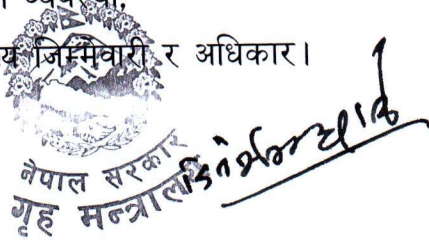 व्यवस्था,
जिम्मेवारी र अधिकार।
नेपाल सरकार
गृह मन्त्रालय